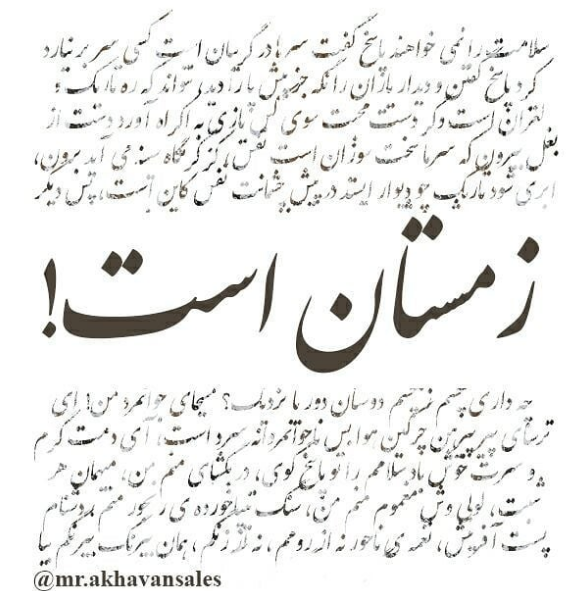 سلامت را نمی خواهند پاسخ گفت سرها در گریبان است کسی سر بر نیارد
کرد پاسخ گفتن و دیدار یاران را نگه جز پیش پا را دید، نتواند که ره تاریک و
لغزان است وگر دست محبت سوی کس یازی به اکراه آورد دست از
بغل بیرون که سرما سخت سوزان است نفس، کز گرمگاه سینه می آید برون،
ابری شود تاریک چو دیوار ایستد در پیش چشمانت نفس کاین است، پس دیگر
زمستان است!
چه داری چشم ز چشم دوستان دور یا نزدیک؟ مسیحای جوانمرد من! ای
ترسای پیر پیرهن چرکین هوا بس ناجوانمردانه سرد است، آی دمت گرم
و سرت خوش باد سلامم را تو پاسخ گوی، در بگشای منم من، میهمان هر
شبت، لولی وش مغموم منم من، سنگ تیپاخورده ی رنجور منم، دشنام
پست آفرینش، نغمه ی ناجور نه از رومم، نه از زنگم، همان بیرنگ بیرنگم بیا
@mr.akhavansales